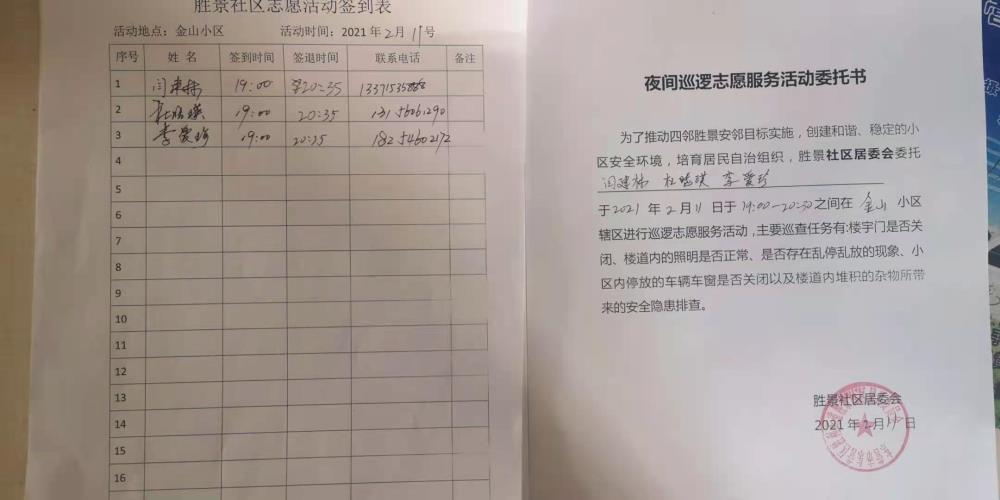 胜景社区志愿活动签到表
活动地点：金山小区 活动时间：2021年2月11号
序号 姓名 签到时间 签退时间 联系电话 备注
1 闫建栋 19:00 20:35
2 杜皓琪 19:00 20:35 13156061290
3 李爱珍 19:00 20:35 18254602172
4
5
6
7
8
9
10
11
12
13
14
15
16
夜间巡逻志愿服务活动委托书
为了推动四邻胜景安邻目标实施，创建和谐、稳定的小
区安全环境，培育居民自治组织，胜景社区居委会委托
闫建栋 杜皓琪 李爱珍
于2021年2月11日于19:00-20:30之间在 金山 小区
辖区进行巡逻志愿服务活动，主要巡查任务有:楼宇门是否关
闭、楼道内的照明是否正常、是否存在乱停乱放的现象、小
区内停放的车辆车窗是否关闭以及楼道内堆积的杂物所带
来的安全隐患排查。
胜景社区居委会
2021年2月11日